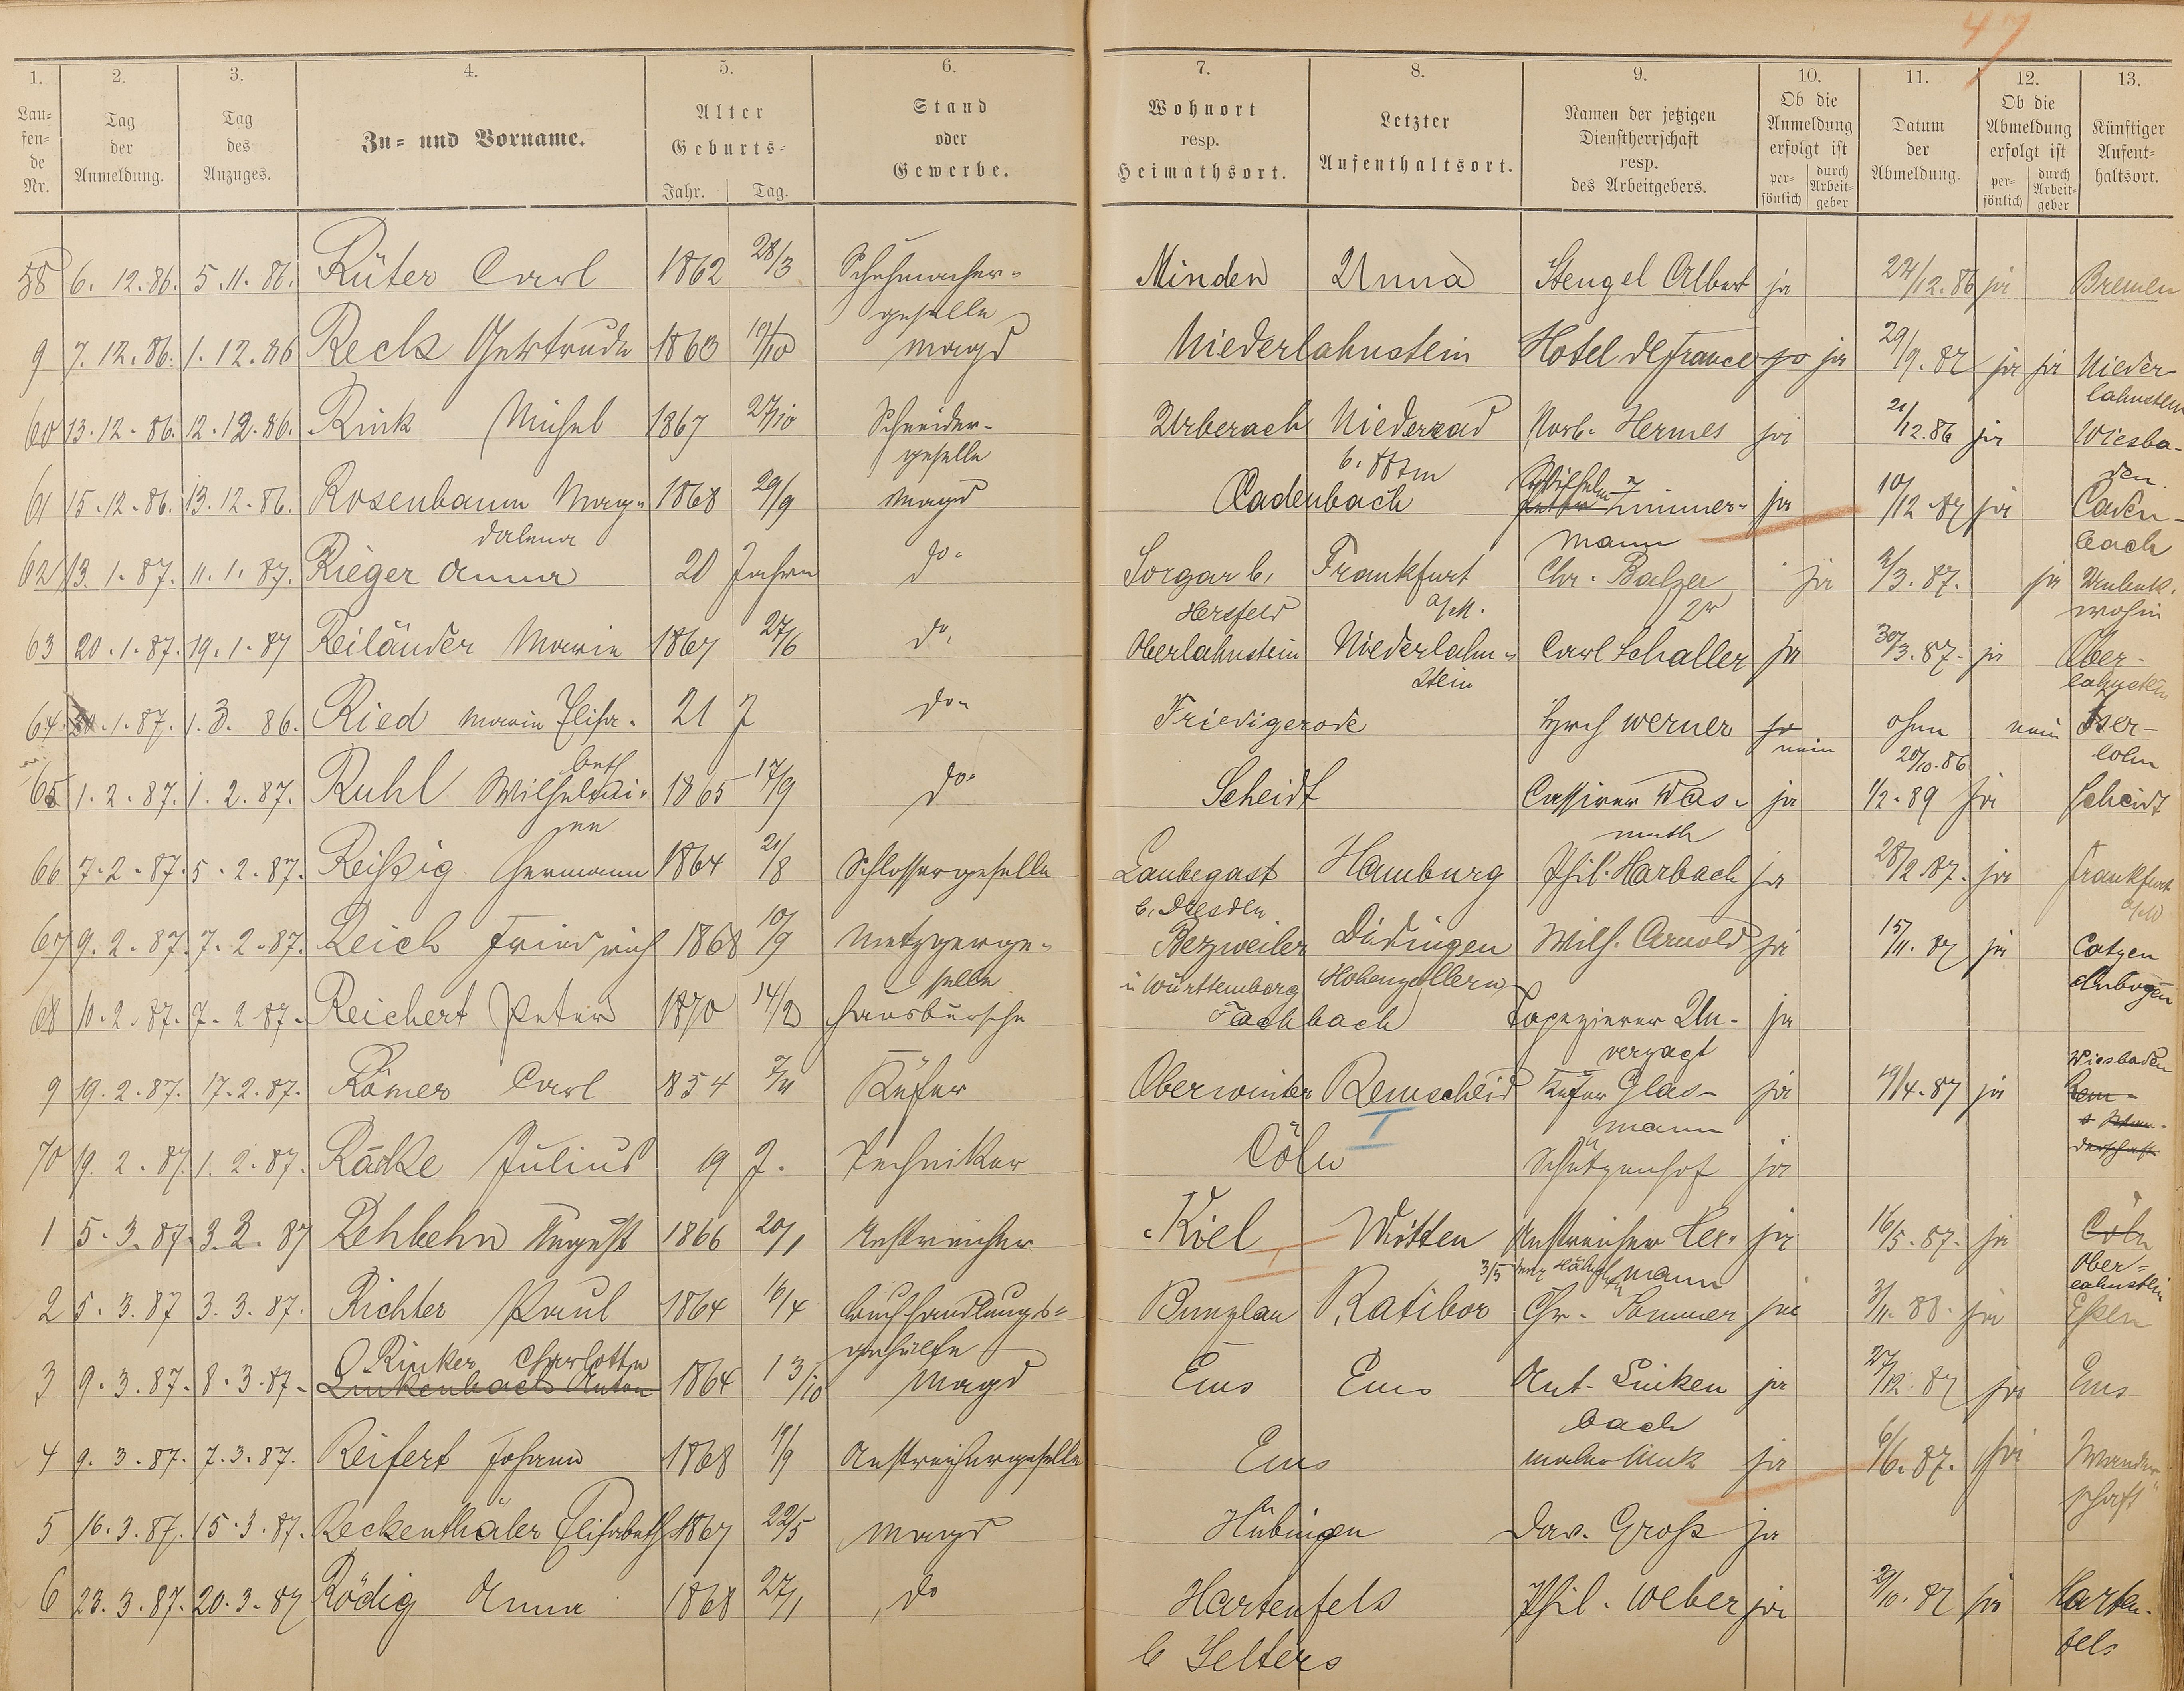 47
1. 2. 3. 4. 5. 6. 7. 8. 9. 10. 11. 12. 13.
Lau=fen=de Nr. Tag der Anmeldung. Tag des Anzuges. Zu= und Vorname. Alter Geburts= Jahr. Tag. Stand oder Gewerbe. Wohnort resp. Heimathsort. Letzter Aufenthaltsort. Namen der jetzigen Dienstherrschaft resp. des Arbeitgebers. Ob die Anmeldung erfolgt ist per=sönlich durch Arbeit=geber Datum der Abmeldung. Ob die Abmeldung erfolgt ist per=sönlich durch Arbeit=geber Künftiger Aufent=haltsort.
58 6. 12. 86. 5. 11. 86. Rüter Carl 1862 28/3 Schuhmacher- Minden Unna Stengel Albert ja 24/12. 86 ja Bremen
geselle
9 7. 12. 86. 1. 12. 86 Reck Gertrude 1863 Magd Niederlahnstein Hotel de France ja ja 29/9. 87 ja ja Nieder-
lahnstein
60 13. 12. 86. 12. 12. 86. Rink Michel 1867 27/10 Schneider- Urberach Niederrad Norb. Hermes ja 21/12. 86 ja Wiesba-
geselle den
61 15. 12. 86. 13. 12. 86. Rosenbaum Mag- 1868 29/9 Magd Cadenbach Wilhelm Zimmer- ja 10/12 87 ja Caden-
dalena mann bach
62 13. 1. 87. 11. 1. 87. Rieger Anna 20 Jahren do. Sorgar b. Frankfurt Chr. Balzer ja 2/3. 87. ja Unbek.
Hersfeld a/M. 2r wohin
63 20. 1. 87. 19. 1. 87 Reiländer Marie 1867 27/6 do. Oberlahnstein Niederlahn- Carl Schaller ja 30/3. 87. ja Ober-
stein lahnstein
64. 1. 87. 1. 3. 86. Ried Marie Elisa- 21 J do. Friedigerode Hrch Werner ja ohne nein Iser-
beth nein 20/10. 86 lohn
65 1. 2. 87. 1. 2. 87. Ruhl Wilhelmi- 1865 17/9 do. Scheidt Cassirer Was- ja 1/2. 89 ja Scheidt
ne muth
66 7. 2. 87. 5. 2. 87. Reißig Hermann 1864 21/8 Schlossergeselle Laubegast Hamburg Phil. Harbach ja 28/2 87. ja Frankfurt
b. Dresden a/M
67 9. 2. 87. 7. 2. 87. Reich Friedrich 1868 10/9 Metzgerge- Bezweiler Dädingen Wilh. Arnold ja 15/11. 87 ja Catzen
selle i Württemberg Hohenzollern elnbogen
68 10. 2. 87. 7. 2 87. Reichert Peter 1870 14/2 Hausbursche Fachbach Tapezierer Un- ja
verzagt
9 19. 2. 87. 17. 2. 87. Römer Carl 1854 Küfer Oberwinter Remscheid Küfer Glas- ja 19/4. 87 ja Wiesbaden
mann Rem-
70 19. 2. 87. 1. 2. 87. Räcke Julius 19 J. Techniker Cöln Schützenhof ja
1 5. 3. 87. 3. 3. 87 Rehbehn August 1866 20/1 Anstreicher Kiel Witten Anstreicher Her- ja 16/5. 87. ja Cöln
mann Ober-
lahnstein
2 5. 3. 87 3. 3. 87. Richter Paul 1864 16/4 Buchhandlungs- Bunzlau Ratibor Chr. Sommer ja 3/11. 88. ja Eßen
gehülfe
3 9. 3. 87. 8. 3. 87. Rinker Charlotte 1864 13/10 Magd Ems Ems Ant. Linken ja 27/12. 87 ja Ems
Linkenbach Anton bach
4 9. 3. 87. 7. 3. 87. Reifert Johann 1868 Anstreichergeselle Ems Maler Muk ja 6/6. 87. ja Wander-
schaft
5 16. 3. 87. 15. 3. 87. Reckenthäler Elisabeth 1867 22/5 Magd Hübingen Dav. Groß ja
6 23. 3. 87. 20. 3. 87 Rödig Anna 1868 27/1 do Hartenfels Phil. Weber ja 2/10. 87 ja Harten-
b Selters fels